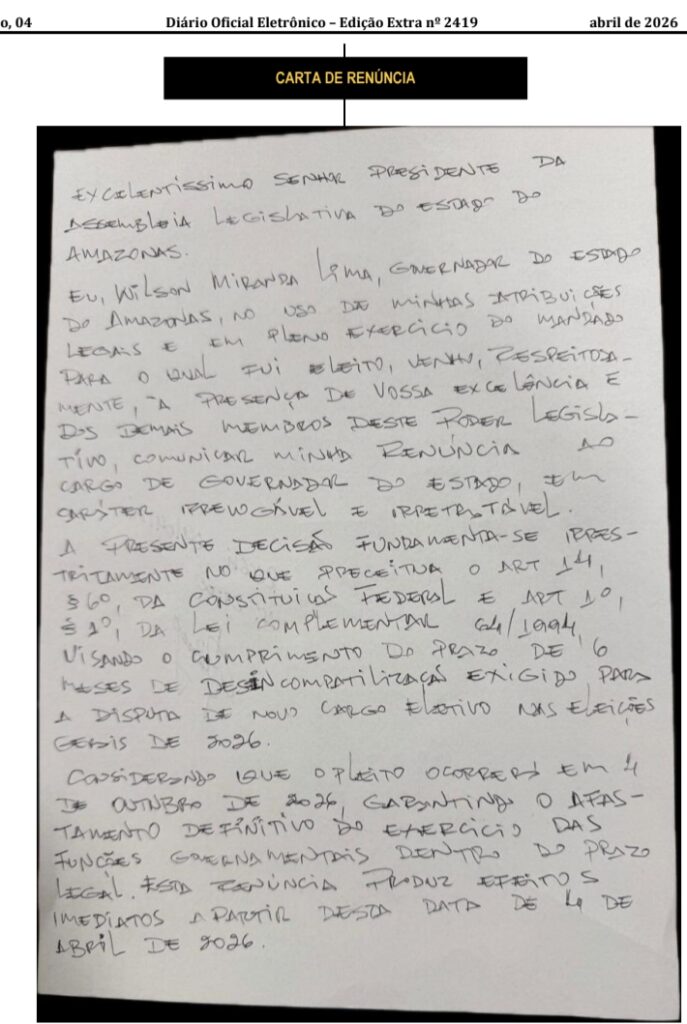 o, 04 Diário Oficial Eletrônico – Edição Extra nº 2419 abril de 2026
CARTA DE RENÚNCIA
EXCELENTÍSSIMO SENHOR PRESIDENTE DA
ASSEMBLEIA LEGISLATIVA DO ESTADO DO
AMAZONAS.
EU, WILSON MIRANDA LIMA, GOVERNADOR DO ESTADO
DO AMAZONAS, NO USO DE MINHAS ATRIBUIÇÕES
LEGAIS E EM PLENO EXERCÍCIO DO MANDADO
PARA O QUAL FUI ELEITO, VENHO, RESPEITOSA-
MENTE, À PRESENÇA DE VOSSA EXCELÊNCIA E
DOS DEMAIS MEMBROS DESTE PODER LEGISLA-
TIVO, COMUNICAR MINHA RENÚNCIA AO
CARGO DE GOVERNADOR DO ESTADO, EM
CARÁTER IRREVOGÁVEL E IRRETRATÁVEL.
A PRESENTE DECISÃO FUNDAMENTA-SE IRRES-
TRITAMENTE NO QUE PRECEITUA O ART 14,
§ 6º, DA CONSTITUIÇÃO FEDERAL E ART 1º,
§ 1º, DA LEI COMPLEMENTAR 64/1994,
VISANDO O CUMPRIMENTO DO PRAZO DE 6
MESES DE DESINCOMPATILIZAÇÃO EXIGIDO PARA
A DISPUTA DE NOVO CARGO ELETIVO NAS ELEIÇÕES
GERAIS DE 2026.
CONSIDERANDO QUE O PLEITO OCORRERÁ EM 4
DE OUTUBRO DE 2026, GARANTINDO O AFAS-
TAMENTO DEFINITIVO DO EXERCÍCIO DAS
FUNÇÕES GOVERNAMENTAIS DENTRO DO PRAZO
LEGAL. ESTA RENÚNCIA PRODUZ EFEITOS
IMEDIATOS A PARTIR DESTA DATA DE 4 DE
ABRIL DE 2026.